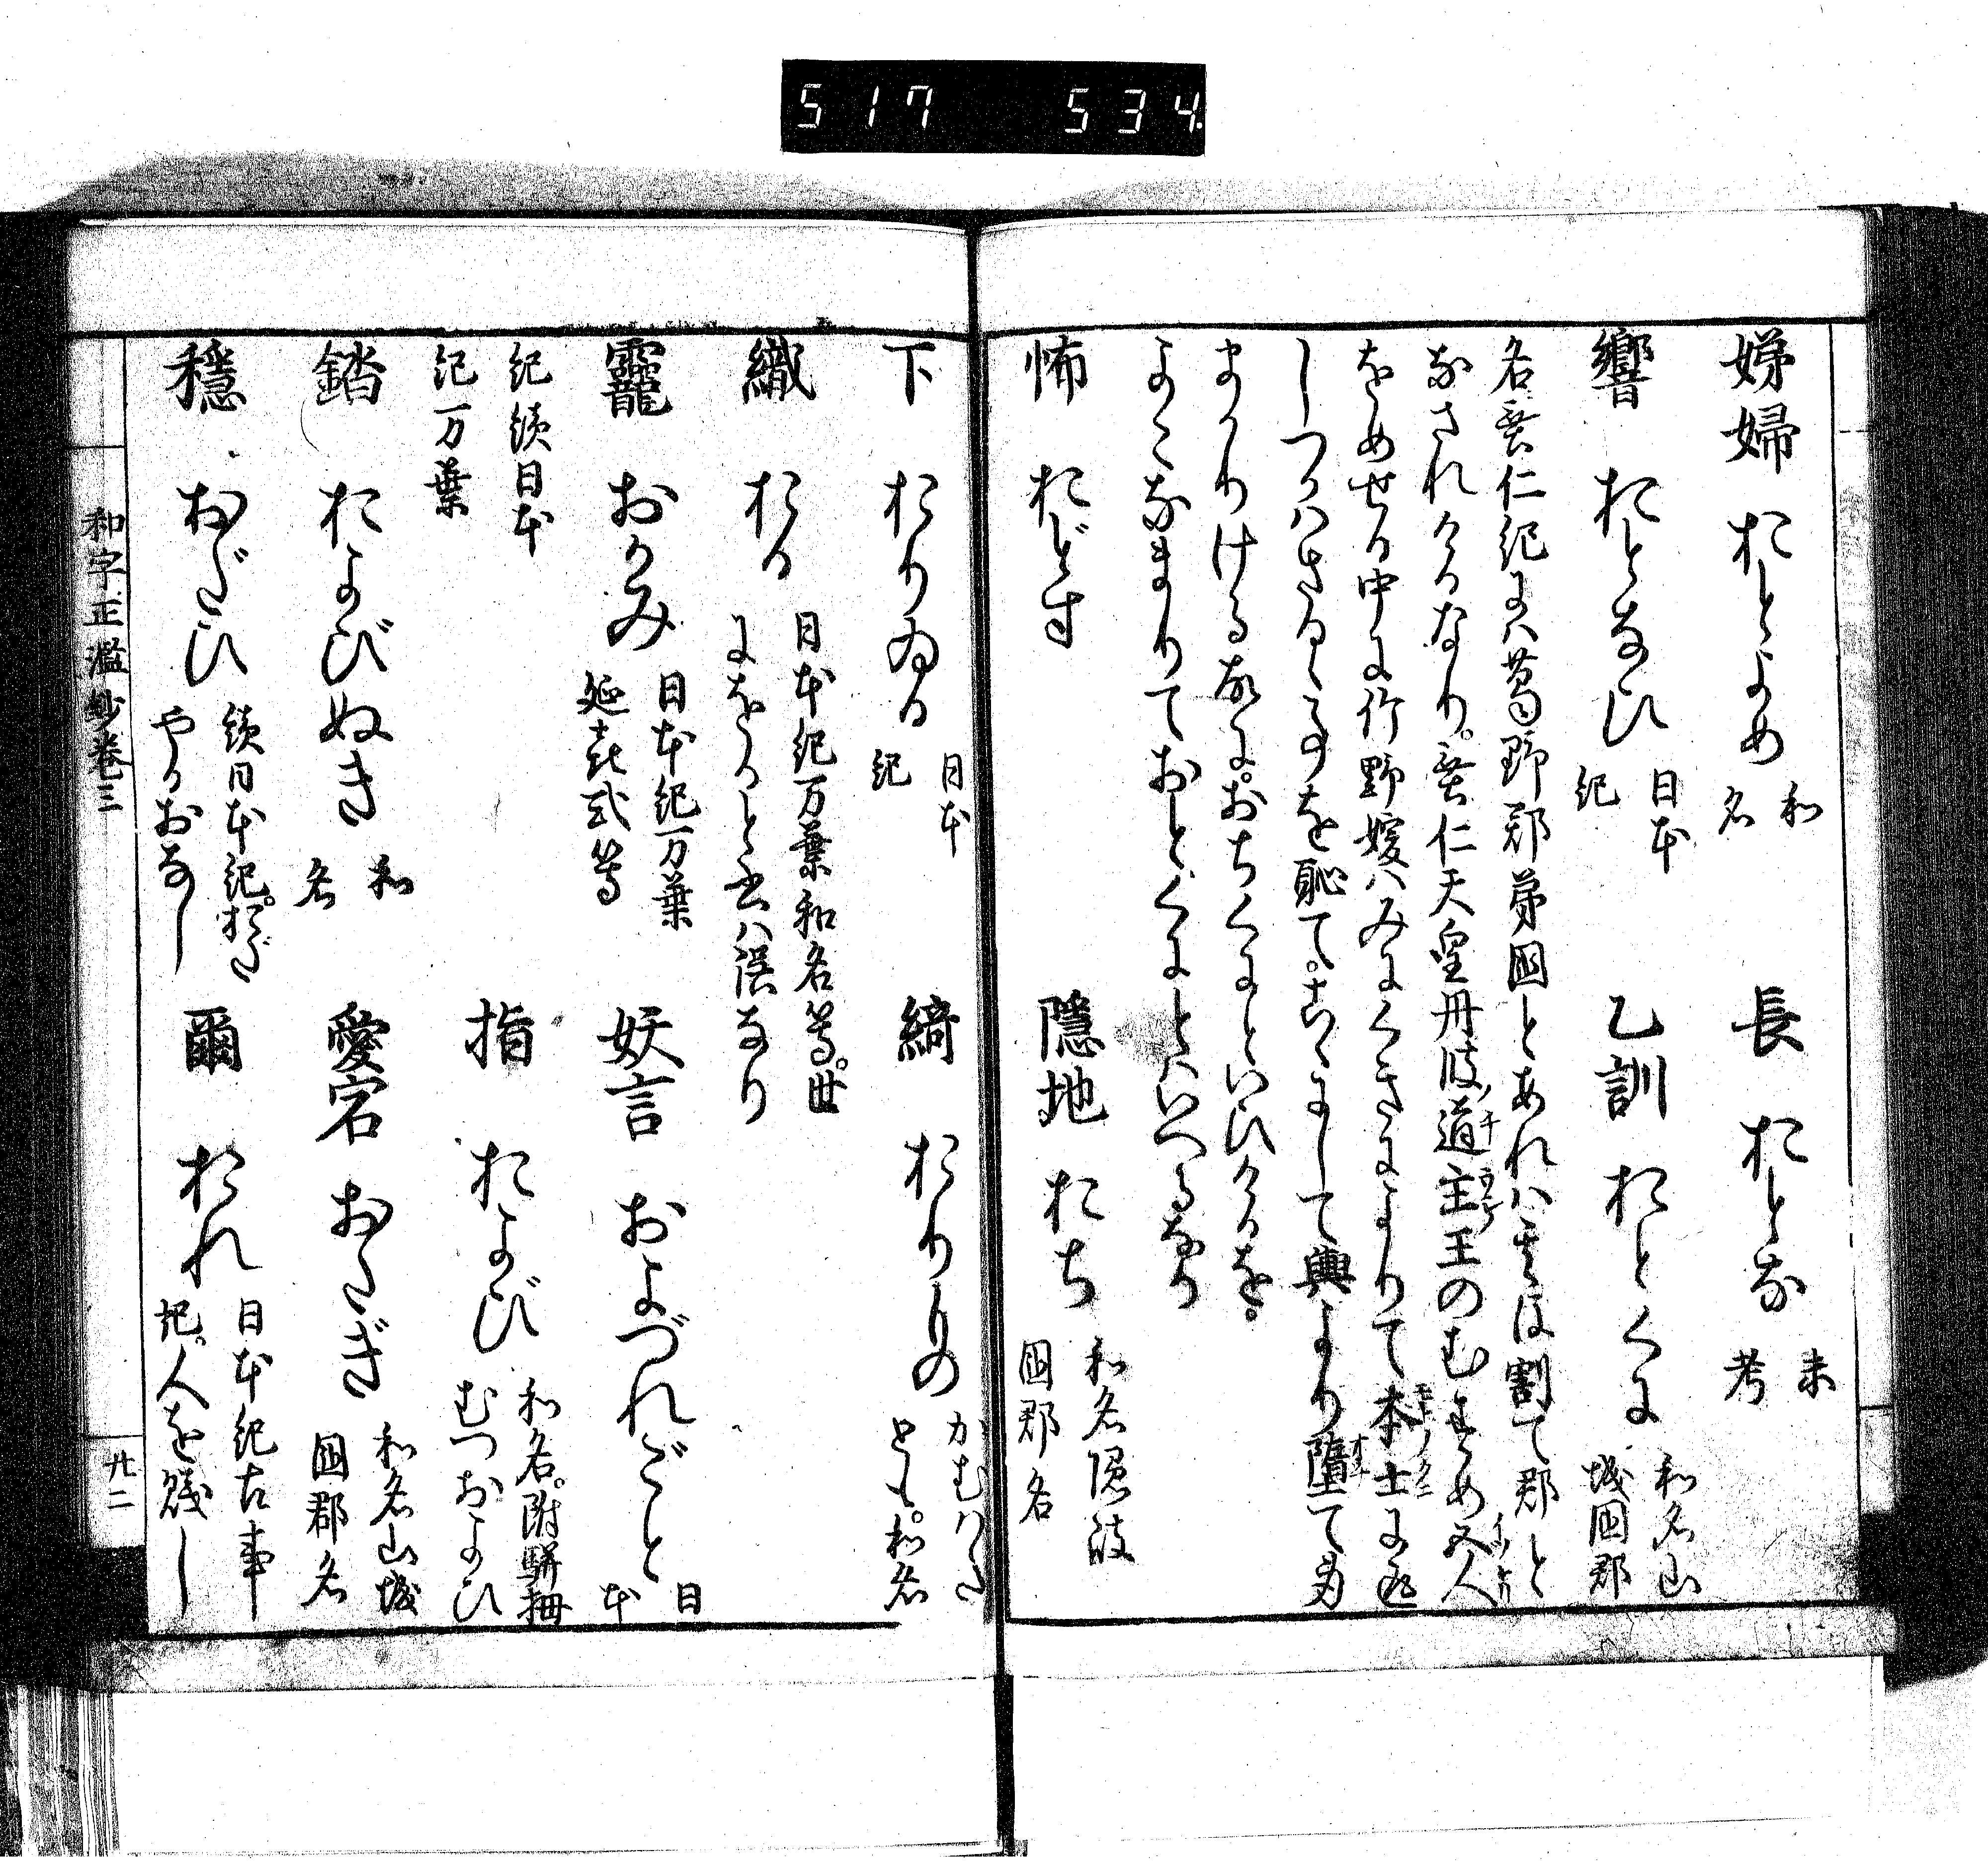 517 534
娣婦 おとよめ 和名 長 おとな 未考
響 おとなひ 日本紀 乙訓 おとくに 和名山城国郡
名垂仁紀には葛野郡弟国とあれは其後割て郡と
なされけるなり。垂仁天皇丹波道主王のむすめ五人
をめせる中に竹野媛はみにくきによりて本土に返
しつかはさるゝ事を恥て。こゝにして輿より堕て身
まかりける故に。おちくにといひけるを。
よこなまりておとくにとはいへるなり
怖 おどす 隠地 おち 和名隠岐国郡名
下 おりゐる 日本紀 綺 おりもの かむはたとも。和名
織 おる 日本紀万葉和名等。世にをると云は誤なり
龗 おかみ 日本紀万葉延喜式等 妖言 およづれごと 日本
紀続日本紀万葉 指 および 和名。附騈拇むつおよひ
錔 およびぬき 和名 愛宕 おたぎ 和名山城国郡名
穏 おだひ 続日本紀。おだやかおなし 爾 おれ 日本紀古事記。人を賤し
和字正濫鈔巻三
廿二